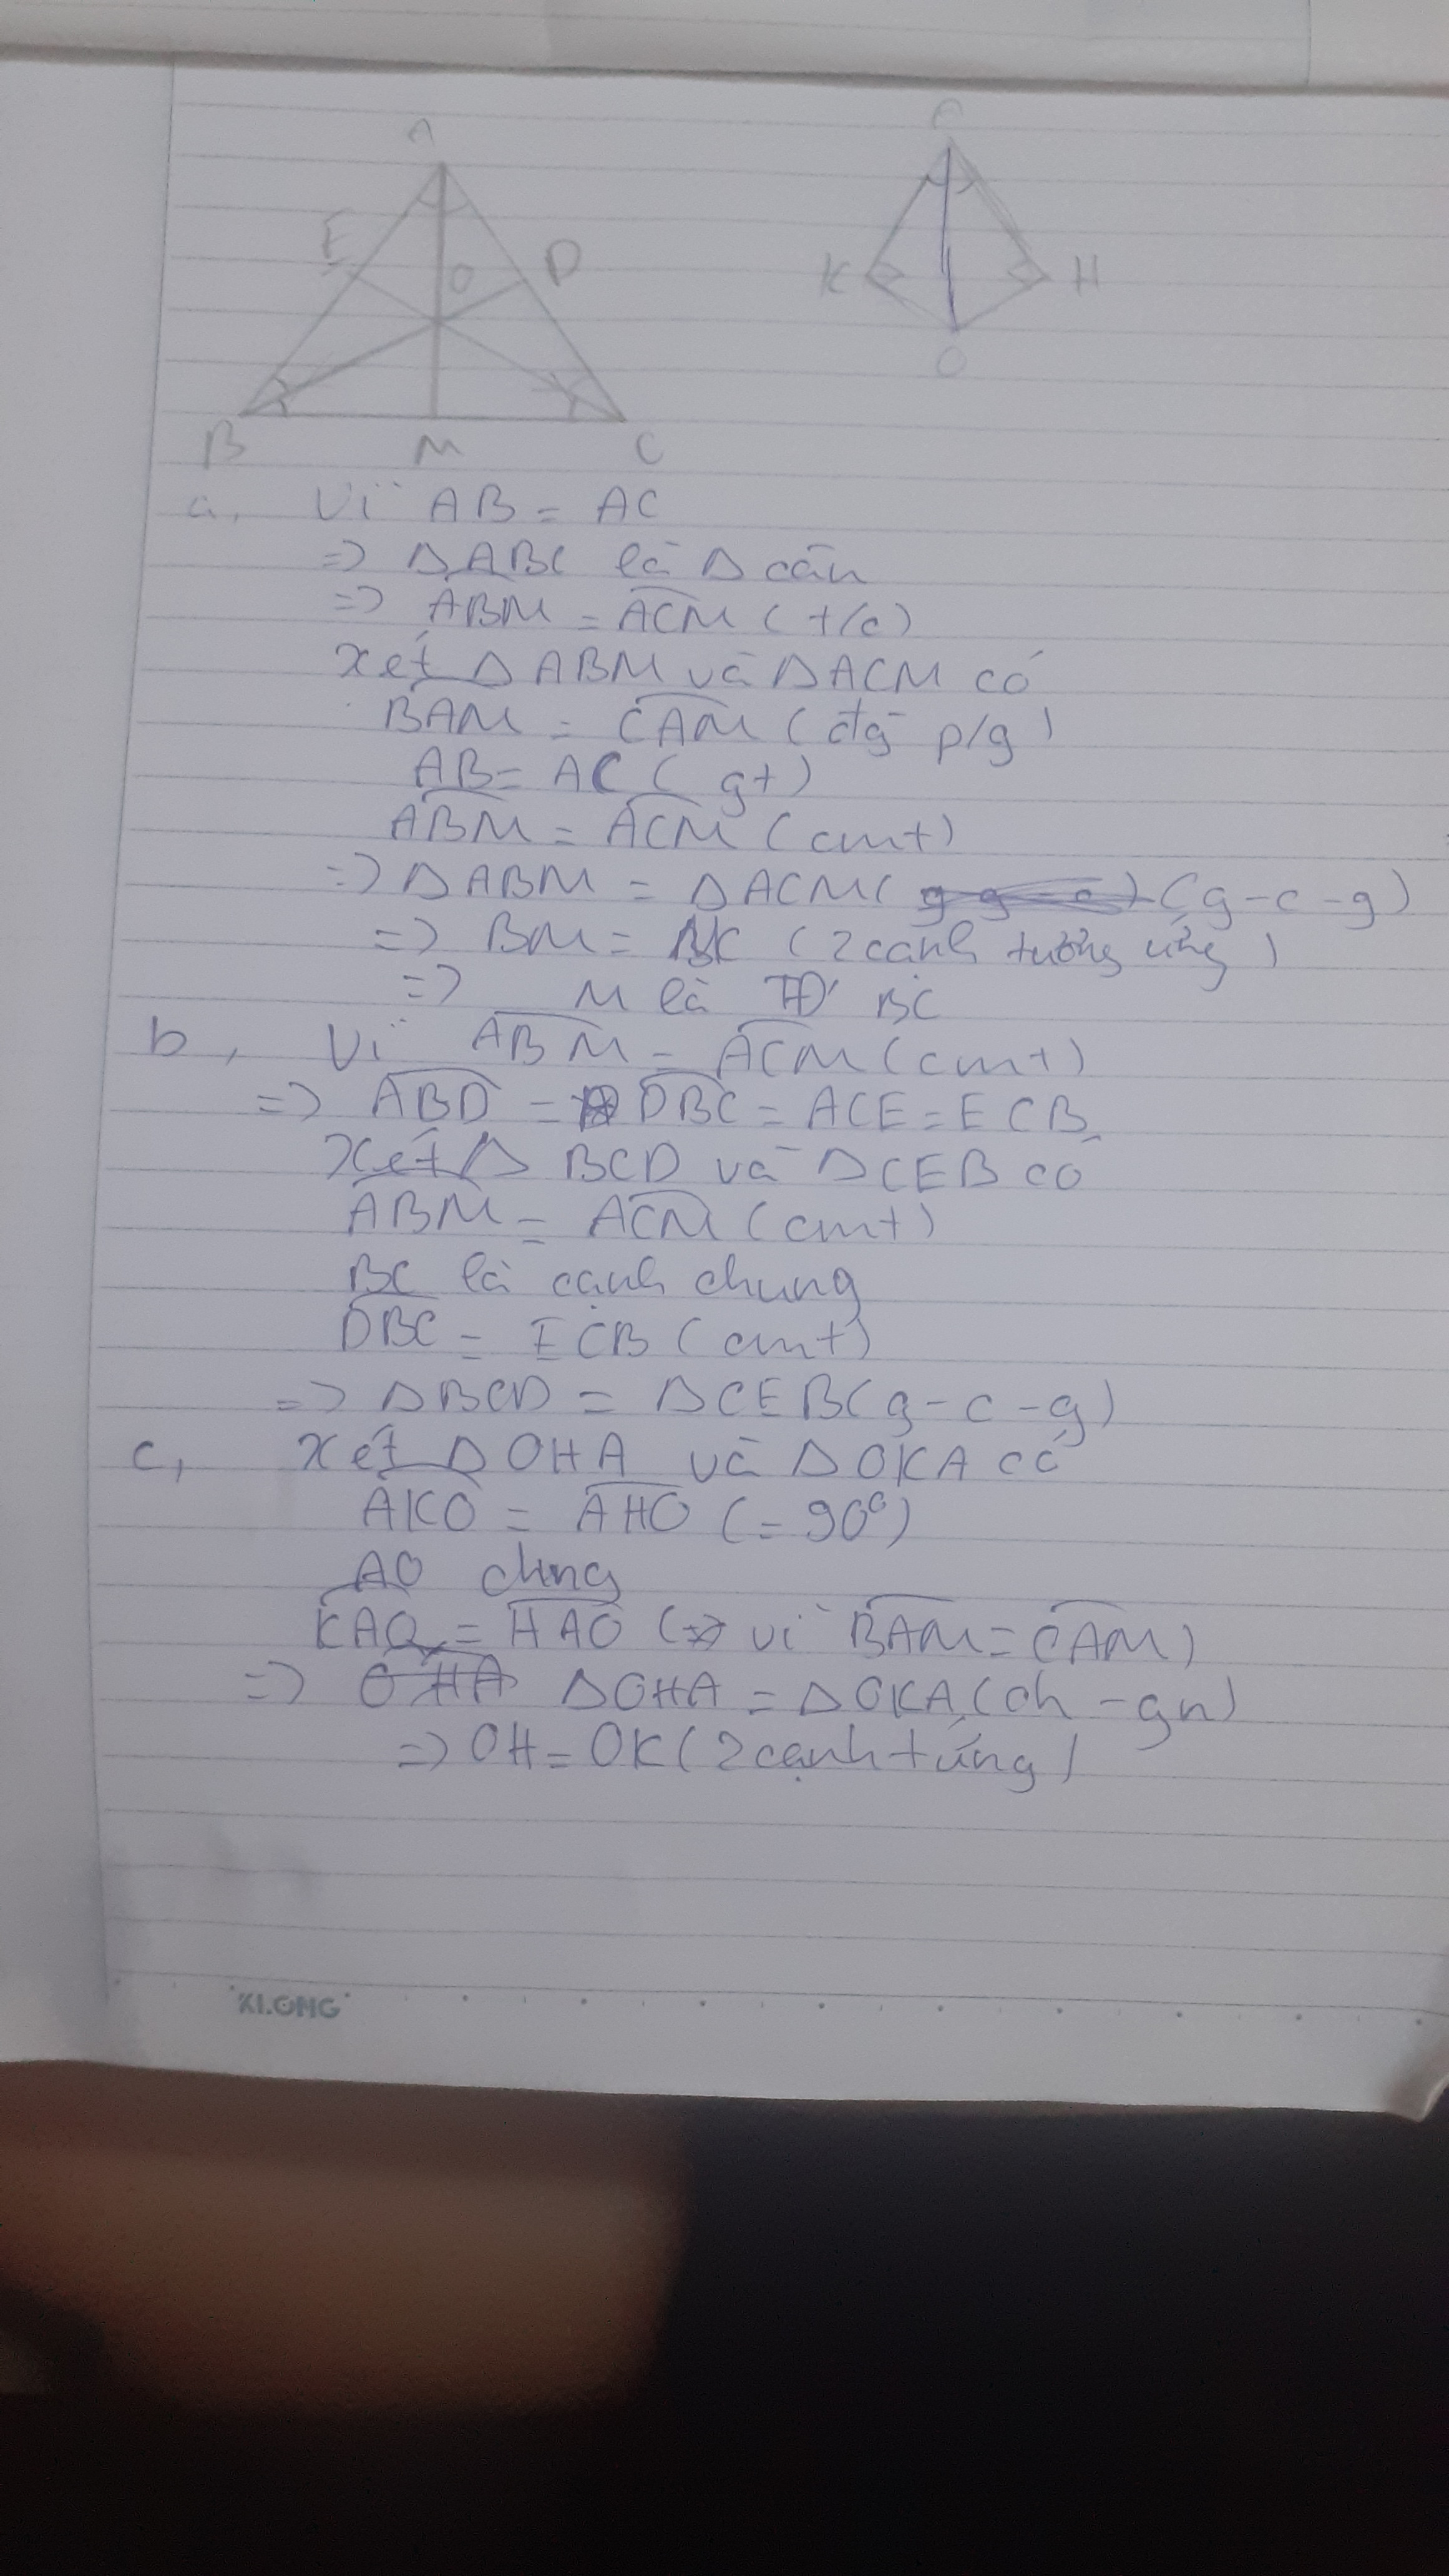 A
E
O
D
B
M
C
A
K
H
O
a, Vì AB = AC
=> ΔABC là Δ cân
=> ABM = ACM (t/c)
xét ΔABM và ΔACM có
BAM = CAM (đg p/g)
AB = AC (gt)
ABM = ACM (cmt)
=> ΔABM = ΔACM (g-c-g)
=> BM = (2 cạnh tương ứng)
=> M là TĐ BC
b, Vì ABM = ACM (cmt)
=> ABD = DBC = ACE = ECB
Xét Δ BCD và ΔCEB có
ABM = ACM (cmt)
BC là cạnh chung
DBC = ECB (cmt)
=> ΔBCD = ΔCEB (g-c-g)
c, xét ΔOHA và ΔOKA có
AKO = AHO (= 90°)
AO chung
KAO = HAO (vì BAM = CAM)
=> ΔOHA = ΔOKA (ch - gn)
=> OH = OK (2 cạnh t ứng)
KLONG